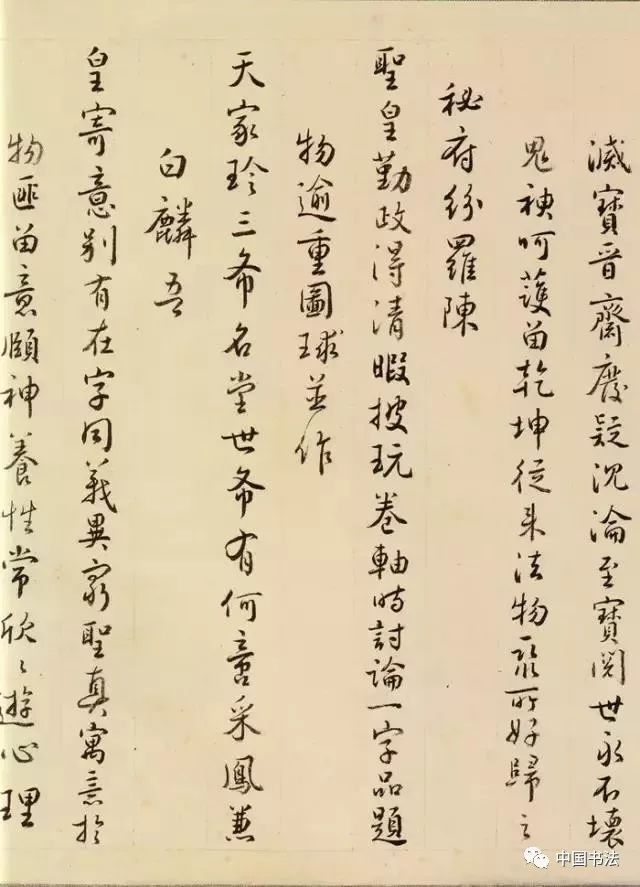 滅寶晉齋廢疑沉淪至寶閱世永不壞
鬼神呵護留乾坤從来法物聚所好歸之
秘府紛羅陳
聖皇勤政得清暇披玩卷軸時討論一字品題
物逾重圖球並作
天家珍三希名堂世希有何啻采鳳兼
白麟吾
皇寄意别有在字同義異窮聖真寓意於
物匪留意頤神養性常欣〻遊心理
中国书法